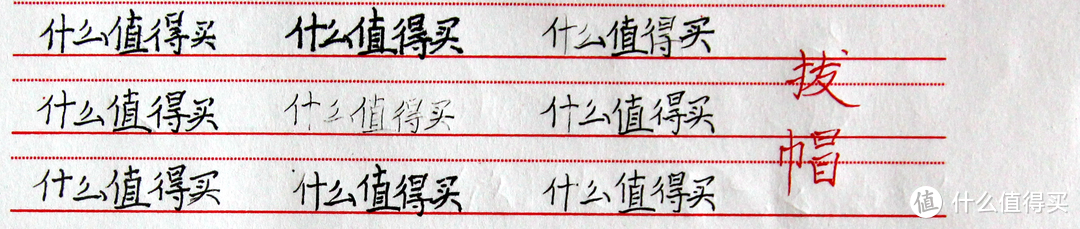 什么值得买 什么值得买 什么值得买
什么值得买 什么值得买 什么值得买
什么值得买 什么值得买 什么值得买
拔
帽
值 什么值得买